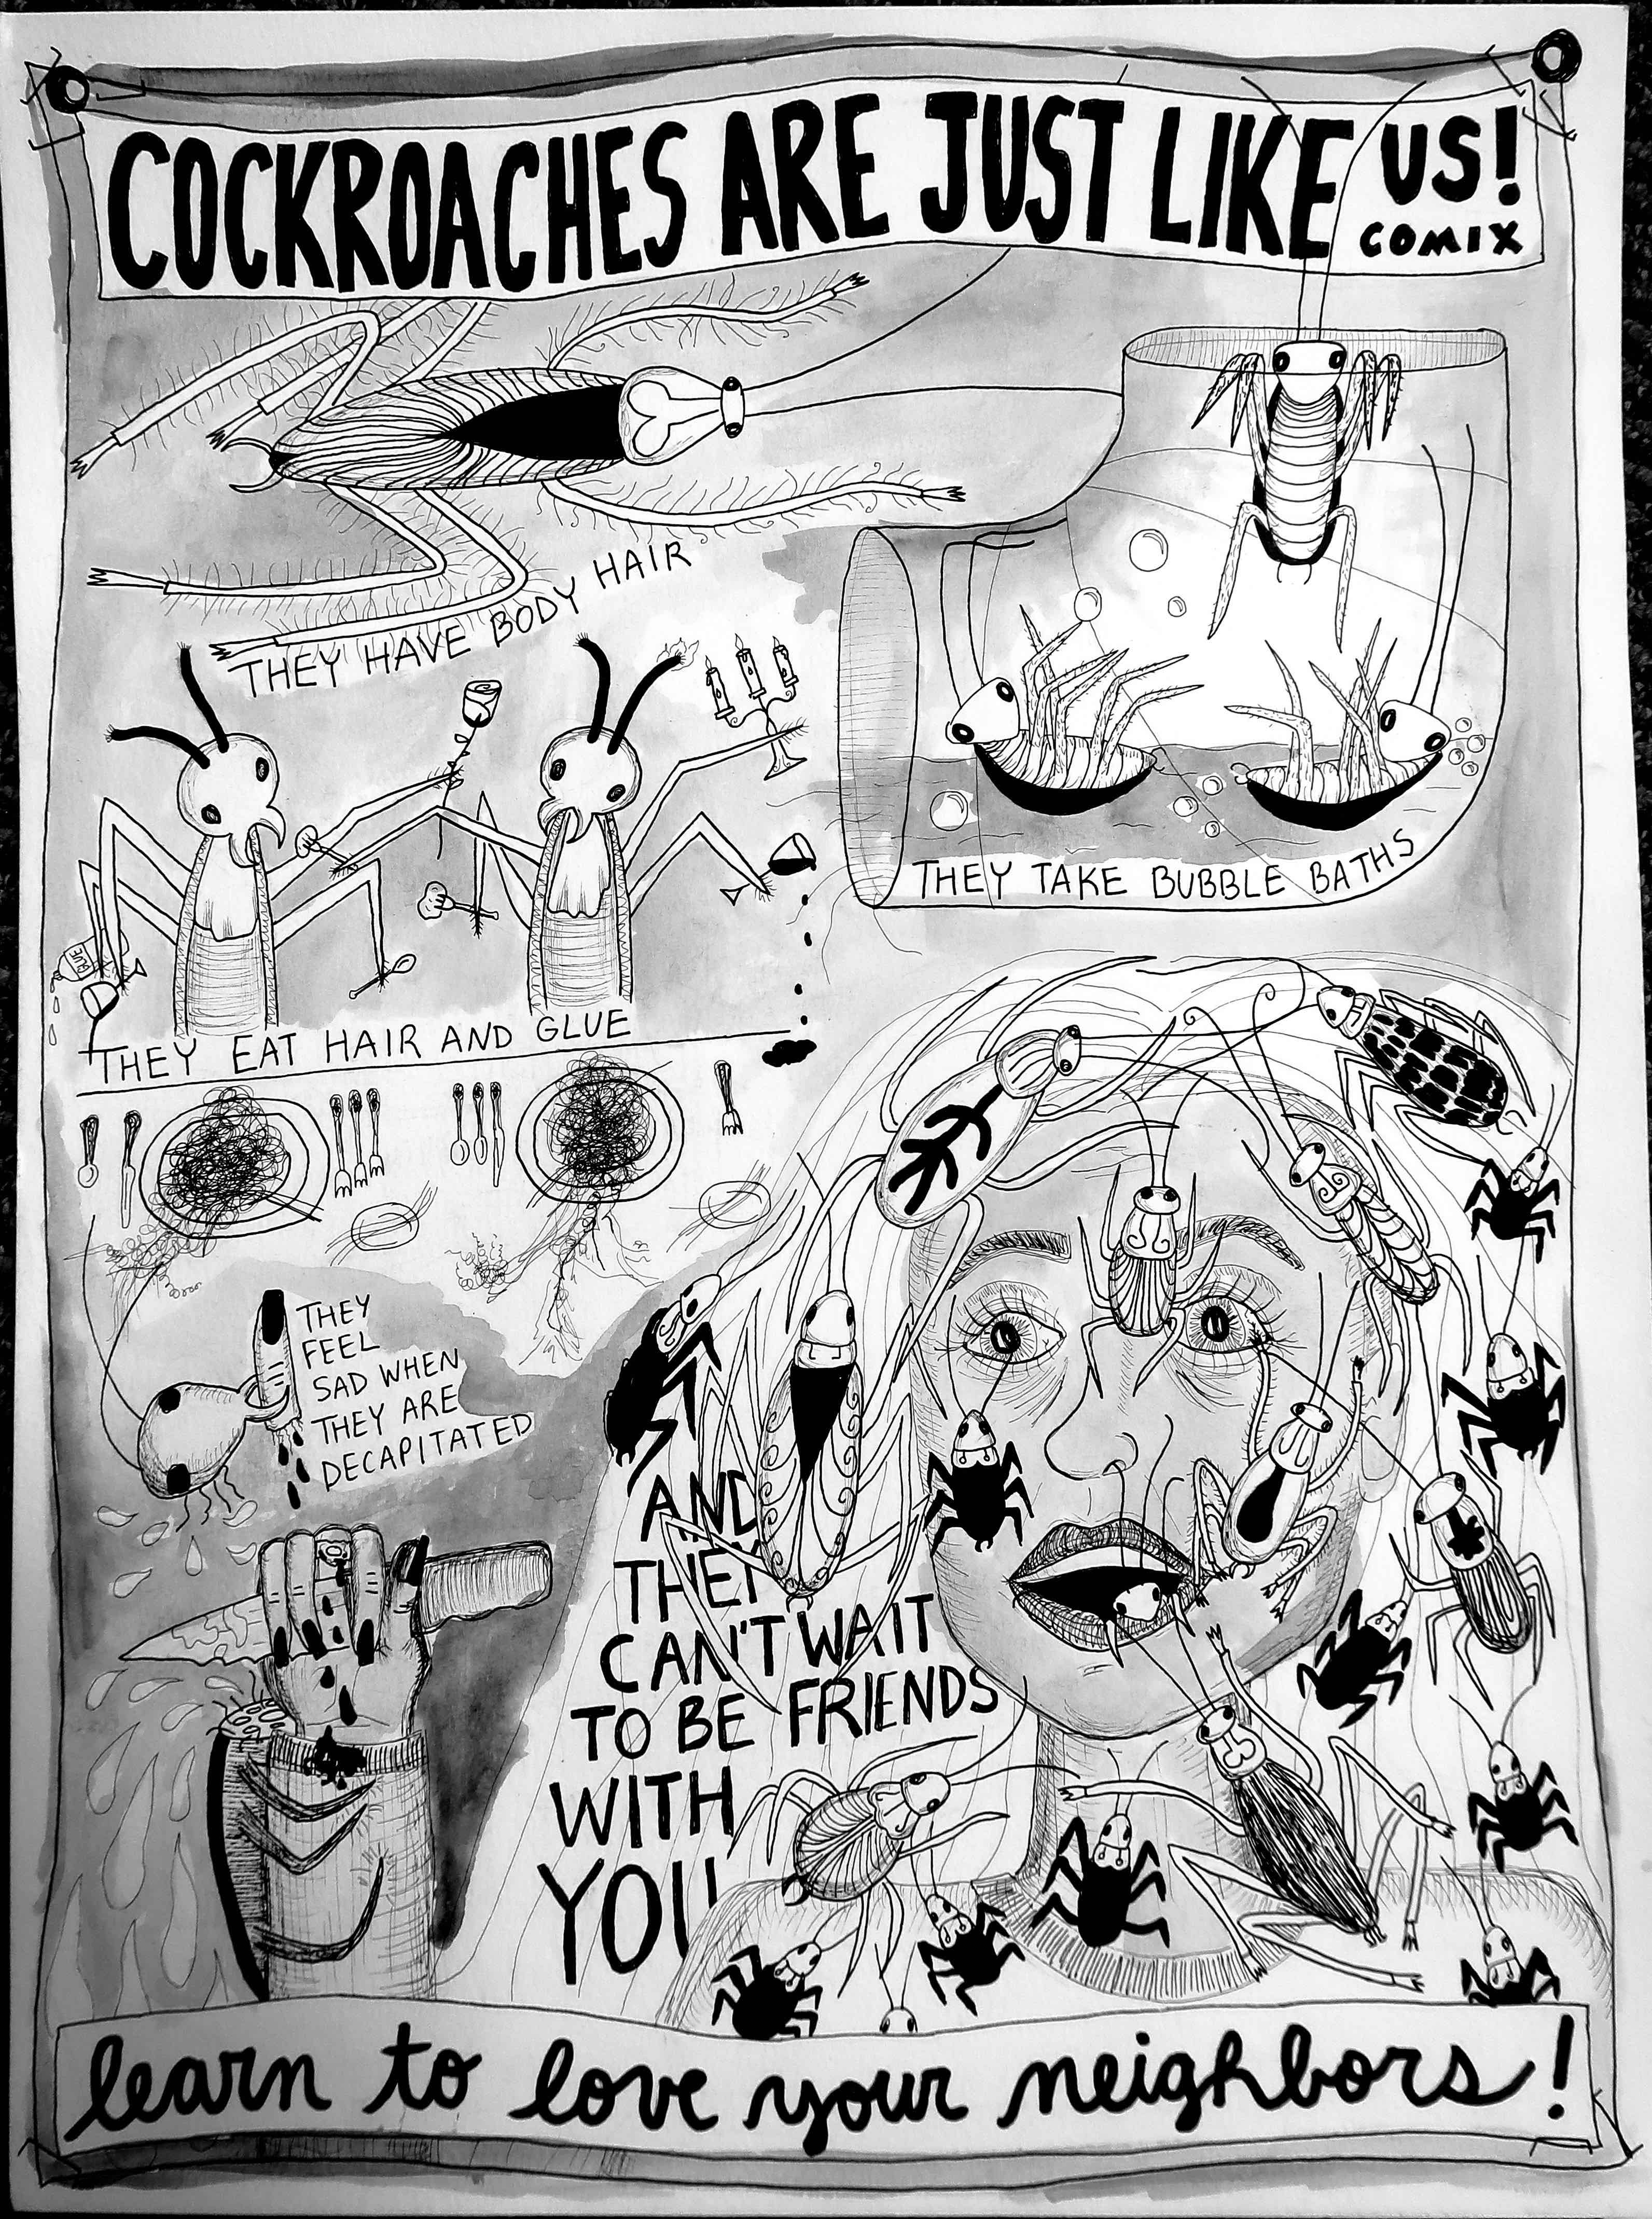 COCKROACHES ARE JUST LIKE US!
COMIX
THEY HAVE BODY HAIR
THEY TAKE BUBBLE BATHS
THEY EAT HAIR AND GLUE
THEY
FEEL
SAD WHEN
THEY ARE
DECAPITATED
AND
THEY
CAN'T WAIT
TO BE FRIENDS
WITH
YOU
learn to love your neighbors!